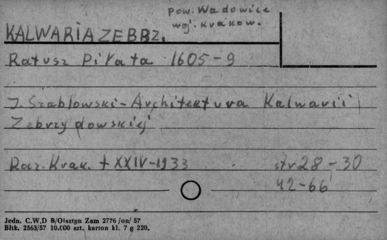 pow. Wadowice
woj. Kraków.
KALWARIA ZEBRZ.
Ratusz Piłata 1605-9
J. Szablowski - Architektura Kalwarii
Zebrzydowskiej
Roz. Krak. t XXIV-1933 str 28-30
42-66
Jedn. C.W.D B/Olsztyn Zam 2776 /on/ 57
Bhk. 2563/57 10.000 szt. karton kl. 7 g 220.